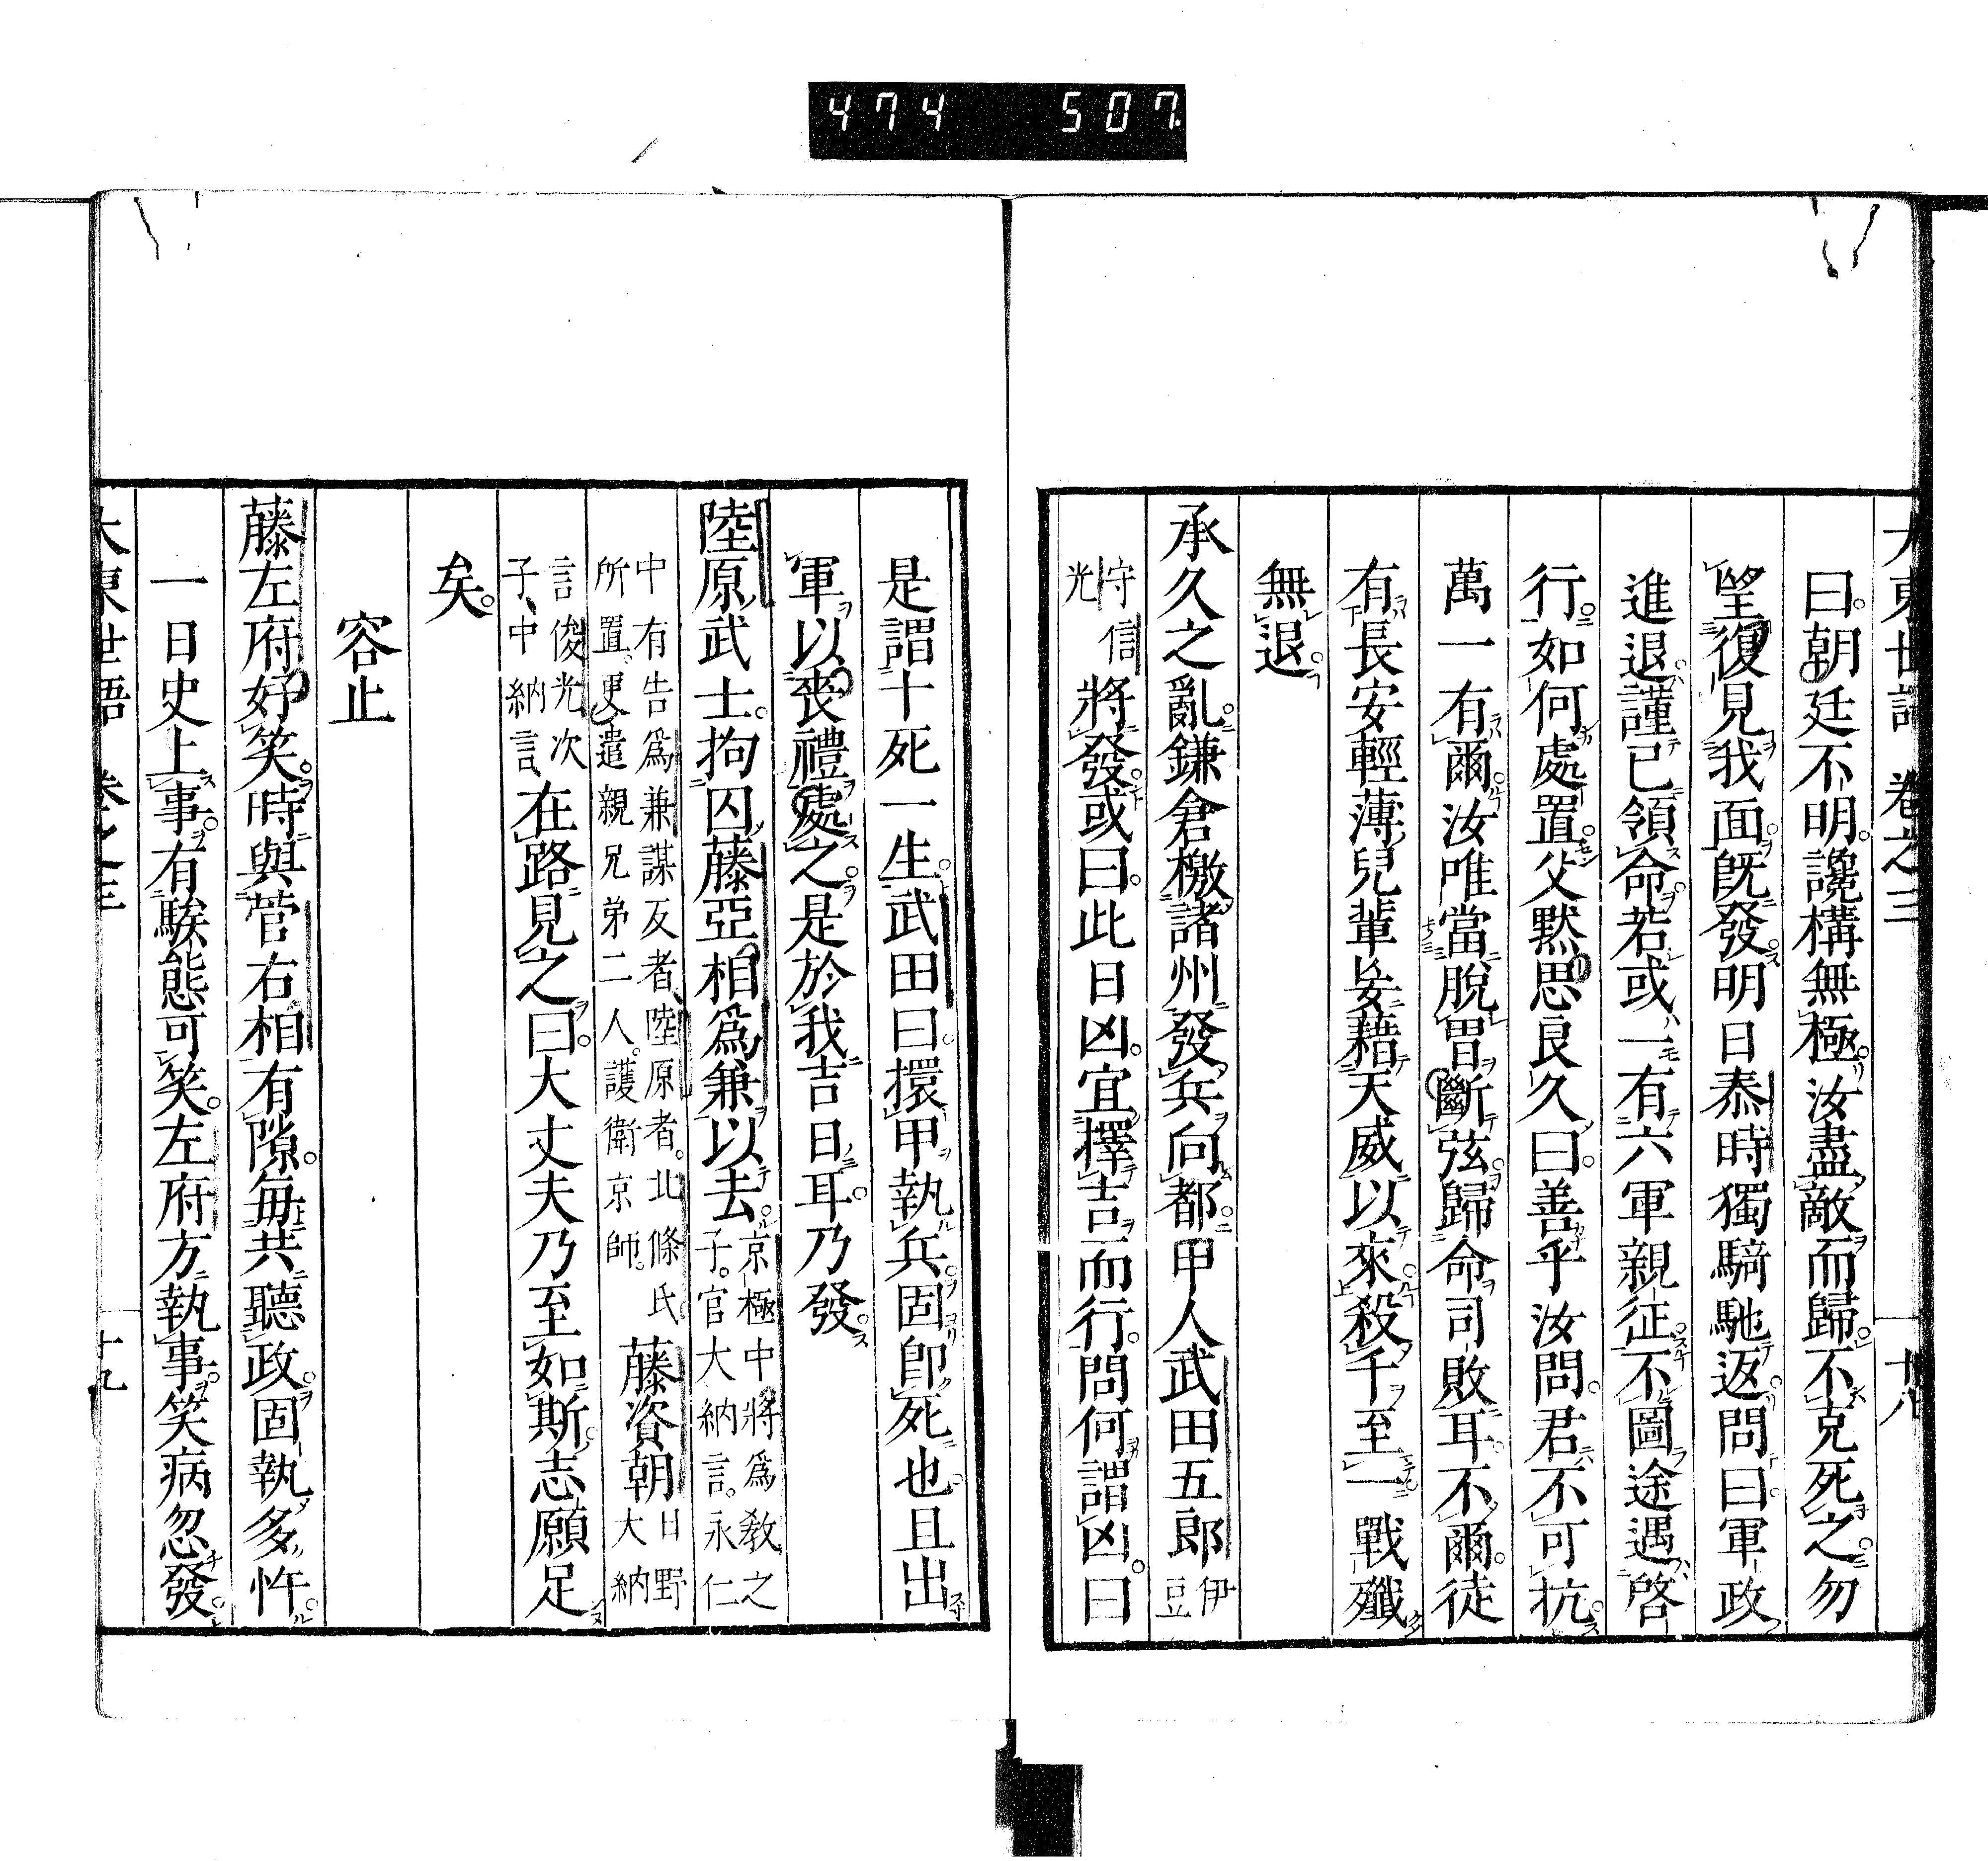 474 507
大東世語 卷之三 十八
曰。朝廷不明。讒構無極。汝盡敵而歸。不克死之。勿
望復見我面。既發。明日泰時獨騎馳返。問曰。軍政
進退。謹已領命。若或一有六軍親征。不圖途遇。啓
行。如何處置。父默思良久。曰。善乎汝問。君不可抗。
萬一有爾。汝唯當脫冑斷弦。歸命司敗耳。不爾。徒
有長安輕薄兒輩。妄藉天威以來。殺千至一。戰殱
無退。
承久之亂。鎌倉檄諸州發兵向都。甲人武田五郎伊豆
守信光將發。或曰。此日凶。宜擇吉而行。問何謂凶。曰
是謂十死一生。武田曰。擐甲執兵。固卽死也。且出
軍以喪禮處之。是於我吉日耳。乃發。
陸原武士。拘囚藤亞相爲兼以去。京極中將爲敎之子。官大納言。永仁
中有告爲兼謀反者、陸原者。北條氏所置。更遣親兄弟二人。護衞京師。藤資朝日野大納
言俊光次子、中納言、在路見之。曰。大丈夫乃至如斯。志願足
矣。
容止
藤左府好笑。時與菅右相有隙。每共聽政。固執多忤。
一日史上事。有騃態可笑。左府方執事。笑病忽發。
大東世語 卷之三 十九